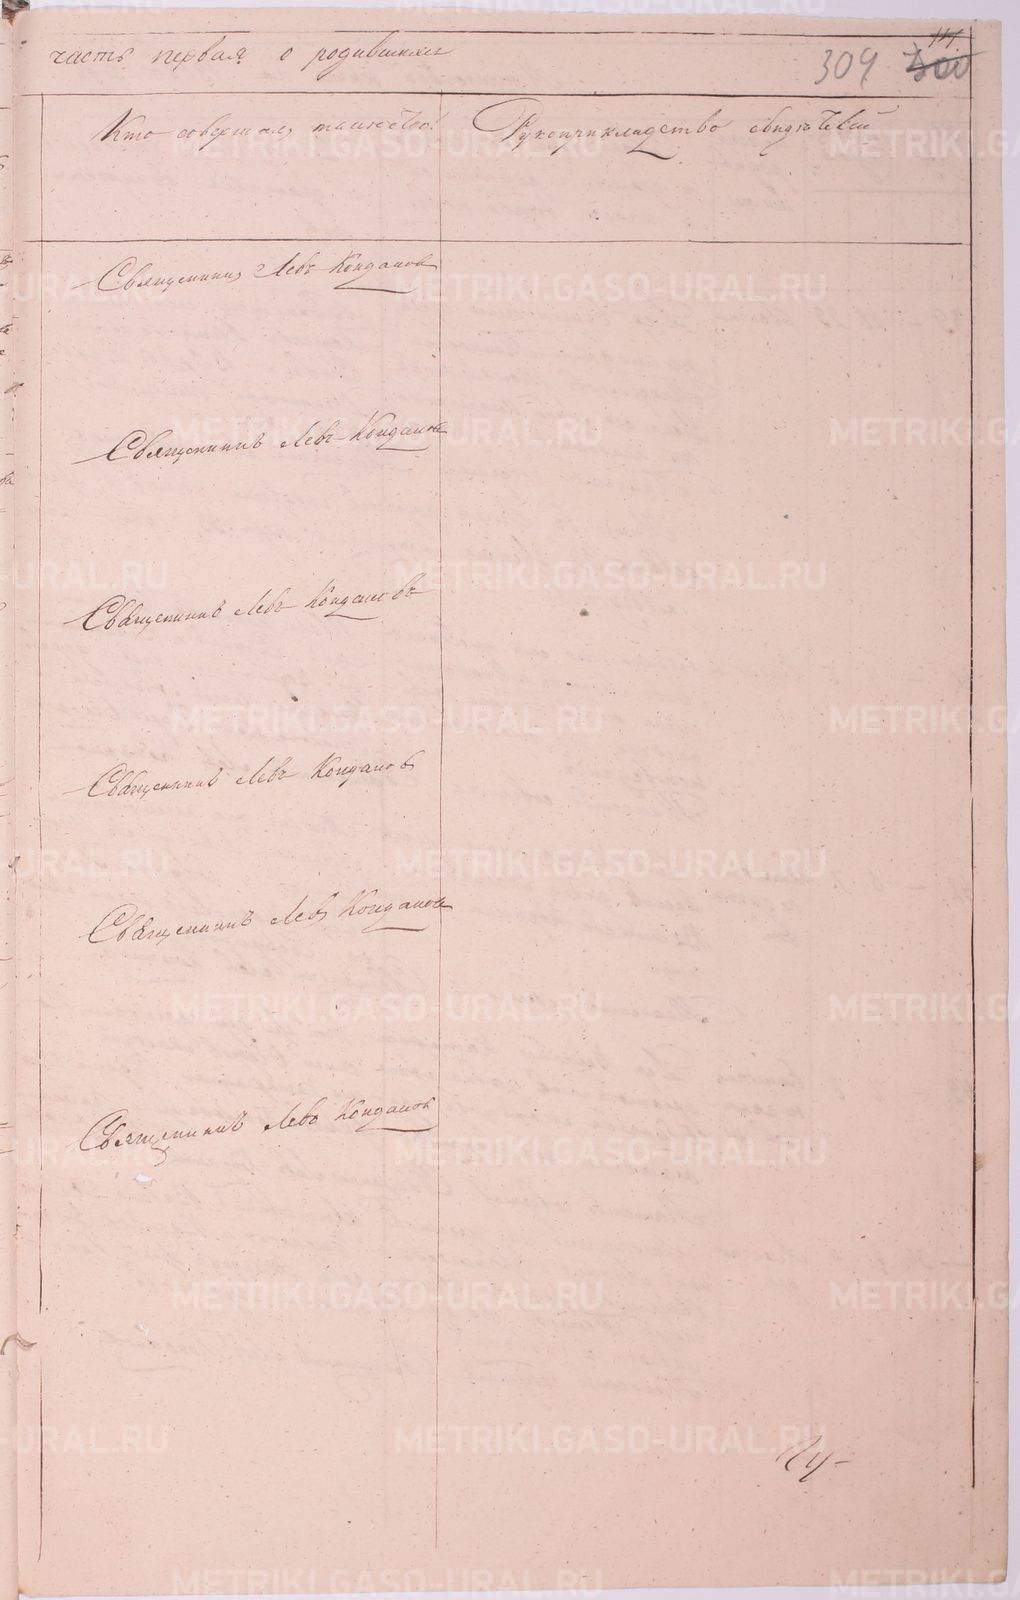 часть первая о родившихся
309 300
Кто совершалъ таинство Рукоприкладство свидѣтелей
Священникъ Левъ Кондаковъ
Священникъ Левъ Кондаковъ
Священникъ Левъ Кондаковъ
Священникъ Левъ Кондаковъ
Священникъ Левъ Кондаковъ
Священникъ Левъ Кондаковъ
METRIKI.GASO-URAL.RU